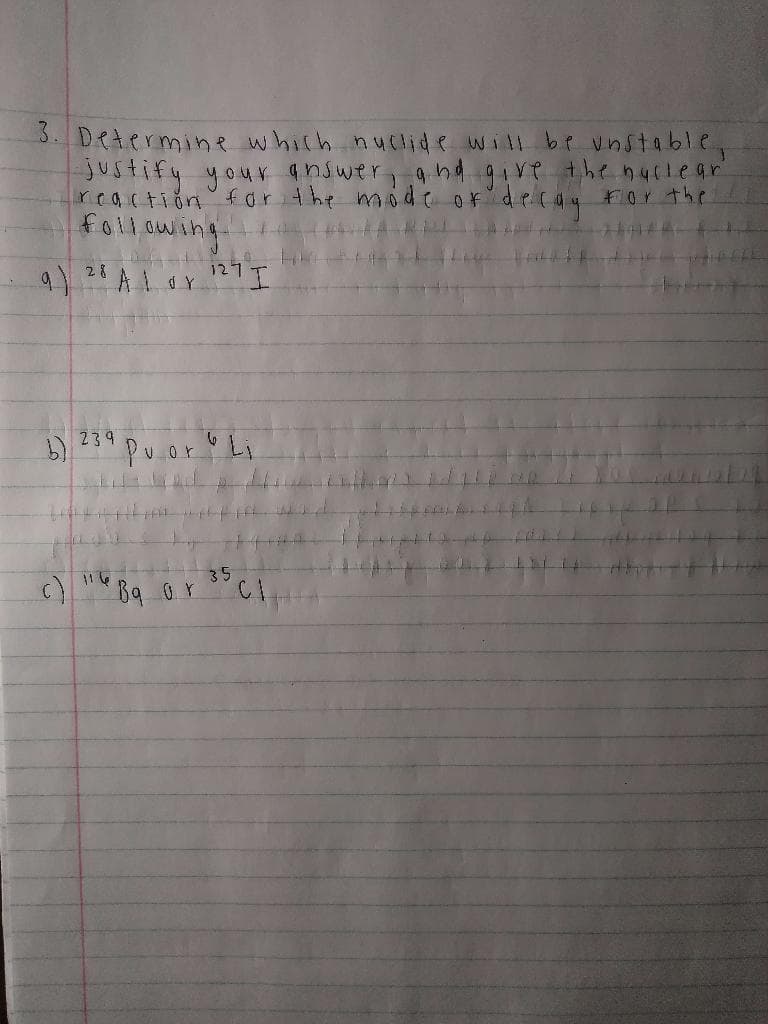 3. Determine which nuclide will be unstable,
justify your answer, and give the nuclear
reaction for the mode of decay for the
following
a) 28 Al or 127 I
b) 239 Pu or 6 Li
c) 116 Ba or 35 Cl